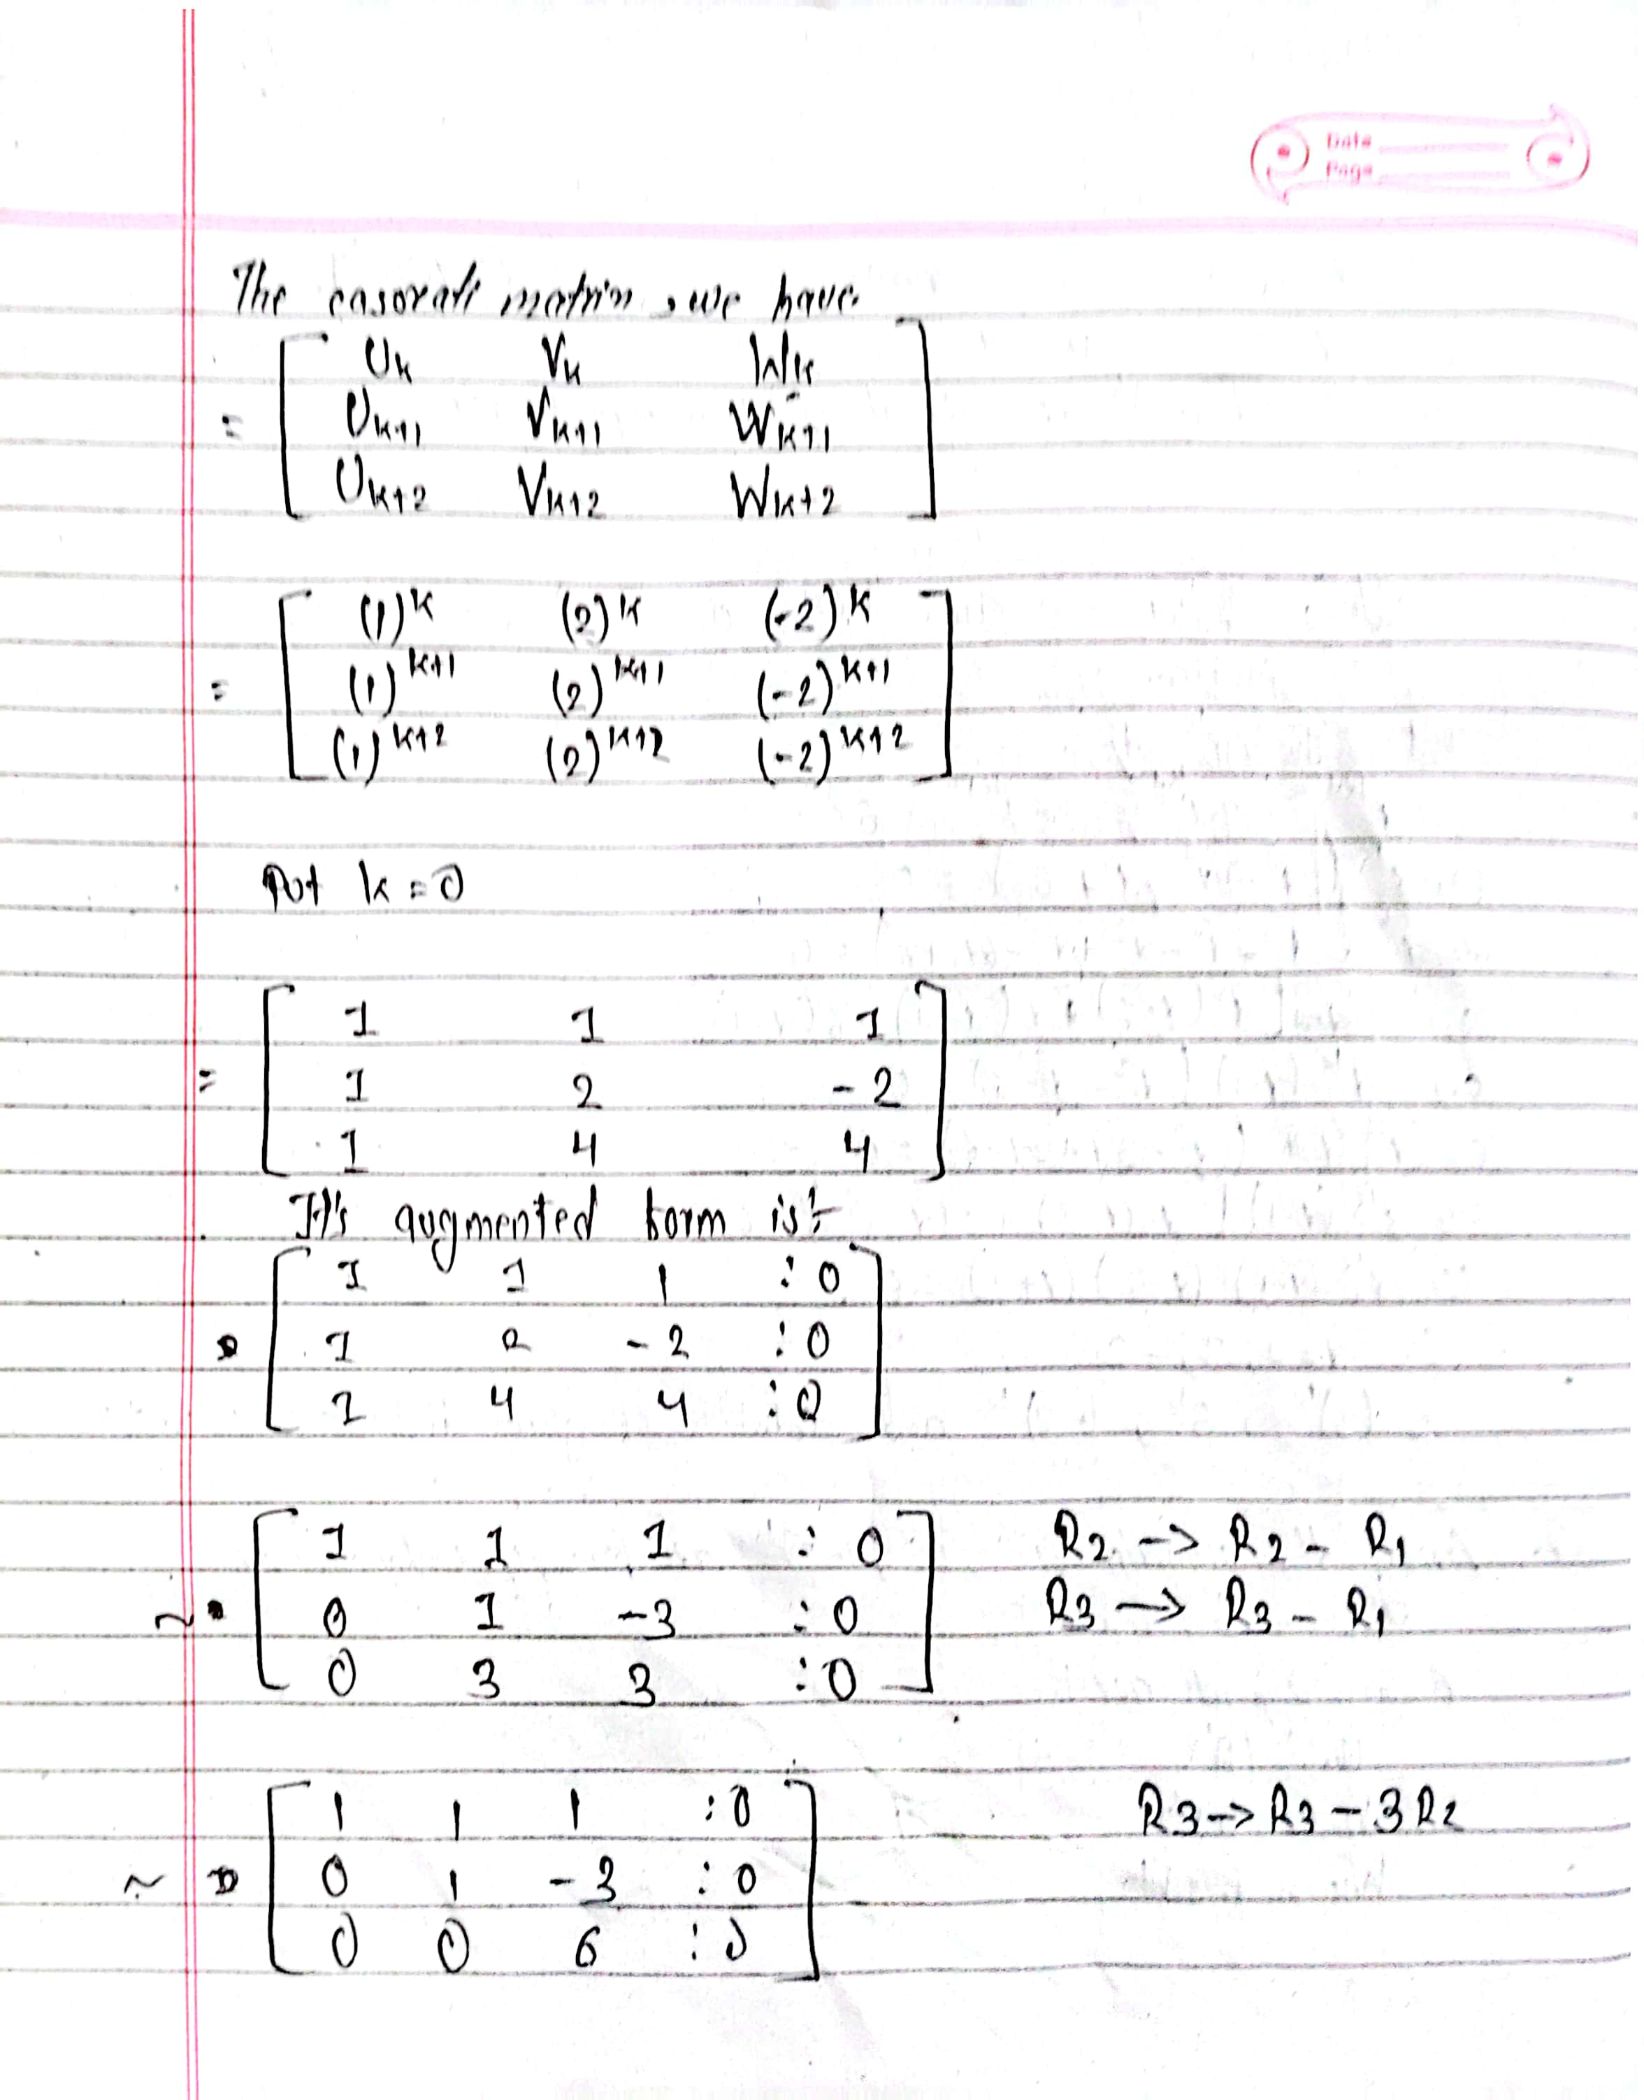 Date
Page
The casorati matrix, we have
= [ Uk Vk Wk
Uk+1 Vk+1 Wk+1
Uk+2 Vk+2 Wk+2 ]
= [ (1)^k (2)^k (-2)^k
(1)^k+1 (2)^k+1 (-2)^k+1
(1)^k+2 (2)^k+2 (-2)^k+2 ]
Put k = 0
= [ 1 1 1
1 2 -2
1 4 4 ]
It's augmented form is:-
[ 1 1 1 : 0
1 2 -2 : 0
1 4 4 : 0 ]
~ [ 1 1 1 : 0 ] R2 -> R2 - R1
0 1 -3 : 0 R3 -> R3 - R1
0 3 3 : 0 ]
[ 1 1 1 : 0 ] R3 -> R3 - 3R2
~ 0 1 -3 : 0
0 0 6 : 0 ]